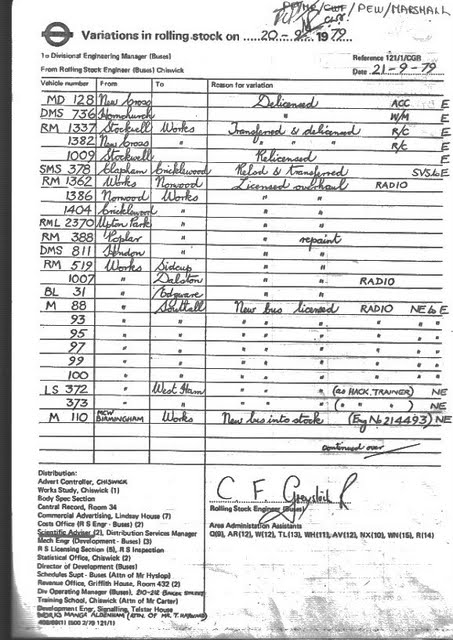 CWF/PEW/MARSHALL
Variations in rolling stock on 20-9-1979
To Divisional Engineering Manager (Buses) Reference 121/1/CGR
From Rolling Stock Engineer (Buses) Chiswick Date 21-9-79
Vehicle number From To Reason for variation
MD 128 New Cross Delicensed ACC E
DMS 736 Hornchurch " W/M E
RM 1337 Stockwell Works Transferred & delicensed R/C E
1382 New Cross " " " R/C E
1009 Stockwell Relicensed E
SMS 378 Clapham Cricklewood Relsd & transferred SVS to E
RM 1362 Works Norwood Licensed overhaul RADIO
1386 Norwood Works " "
1404 Cricklewood " " "
RML 2370 Upton Park " " "
RM 388 Poplar " " repaint
DMS 811 Hendon " " "
RM 519 Works Sidcup " "
1007 " Dalston " " RADIO
BL 31 " Edgware " "
M 88 " Southall New bus licensed RADIO NE to E
93 " " " " " " " "
95 " " " " " " " "
97 " " " " " " " "
99 " " " " " " " "
100 " " " " " " " "
LS 372 " West Ham " " " (as HACK, TRAINER) NE
373 " " " " " ( " " " ) NE
M 110 MCW BIRMINGHAM Works New bus into stock (Eng No 214493) NE
continued over
Distribution:
Advert Controller, CHISWICK
Works Study, Chiswick (1)
Body Spec Section
Central Record, Room 34
Commercial Advertising, Lindsey House (7)
Costs Office (R S Engr - Buses) (2)
Scientific Adviser (2), Distribution Services Manager
Mech Engr (Development - Buses) (3)
R S Licensing Section (5), R S Inspection
Statistical Office, Chiswick (2)
Director of Development (Buses)
Schedules Supt - Buses (Attn of Mr Hyslop)
Revenue Office, Griffith House, Room 432 (2)
Div Operating Manager (Buses), 210-212 BAKER STREET
Training School, Chiswick (Attn of Mr Carter)
Development Engr, Signalling, Telstar House
WORKS MANGR ALDENHAM (ATTN. OF MR. T.
C F
Rolling Stock Engineer (Buses)
Area Administration Assistants
Q(9), AR(12), W(12), TL(13), WH(11), AV(12), NX(10), WN(15), R(14)